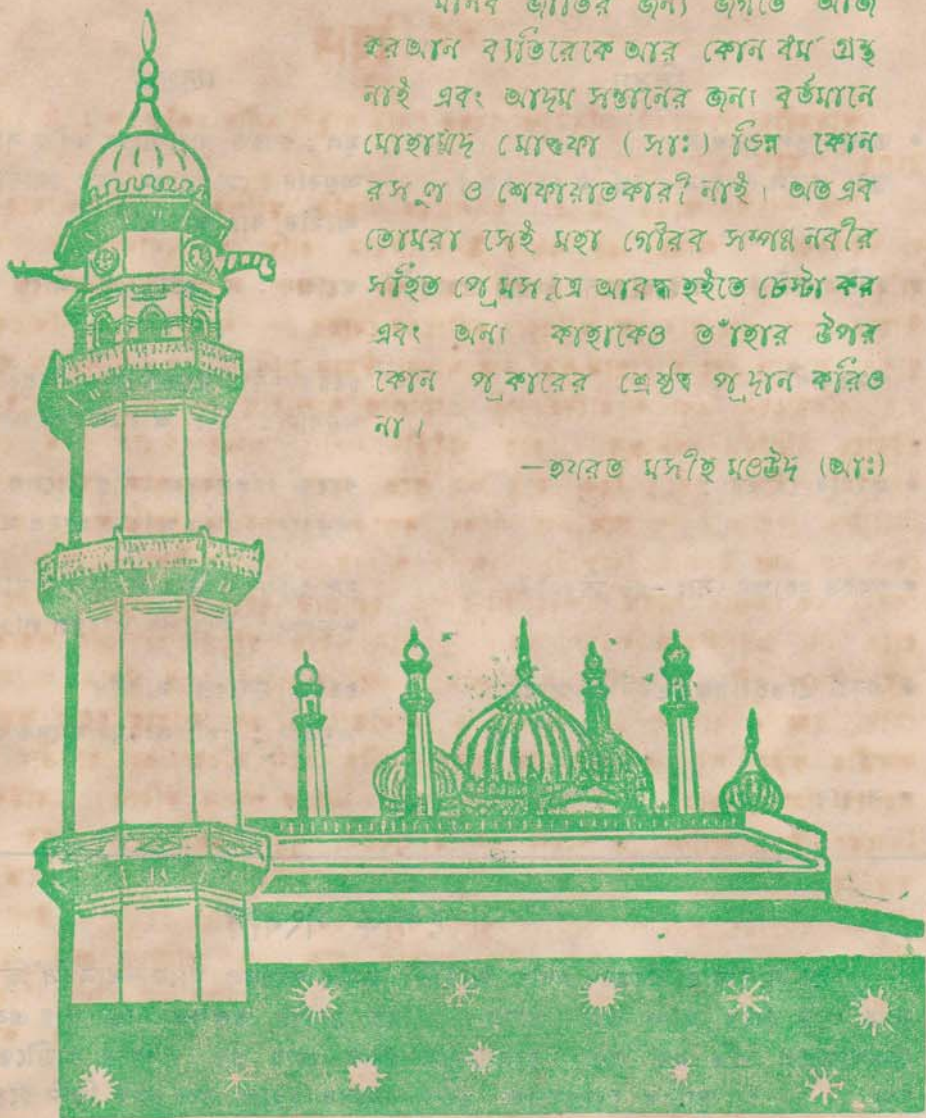 মানব জাতির জন্য জগতে আজ
করআন ব্যতিরেকে আর কোন ধর্ম গ্রন্থ
নাই এবং আদম সন্তানের জন্য বর্তমানে
মোহাম্মদ মোস্তফা ( সাঃ ) ভিন্ন কোন
রসূল ও শেফায়াতকারী নাই। অতএব
তোমরা সেই মহা গৌরব সম্পন্ন নবীর
সহিত প্রেমসূত্রে আবদ্ধ হইতে চেষ্টা কর
এবং অন্য কাহাকেও তাঁহার উপর
কোন প্রকারের শ্রেষ্ঠত্ব প্রদান করিও
না।
—হযরত মসীহ মওউদ (আঃ)